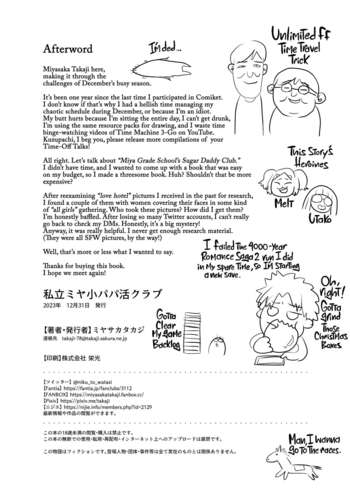 Afterword
I'm ded...
Unlimited FF
Time Travel
Trick
Miyasaka Takaji here,
making it through the
challenges of December's busy season.
It's been one year since the last time I participated in Comiket.
I don't know if that's why I had a hellish time managing my
chaotic schedule during December, or because I'm an idiot.
My butt hurts because I'm sitting the entire day, I can't get drunk,
I'm using the same resource packs for drawing, and I waste time
binge-watching videos of Time Machine 3-Go on YouTube.
Kuzupachi, I beg you, please release more compilations of your
Time-Off Talks!
This Story's
Heroines
Melt
Utako
All right. Let's talk about "Miya Grade School's Sugar Daddy Club."
I didn't have time, and I wanted to come up with a book that was easy
on my budget, so I made a threesome book. Huh? Shouldn't that be more
expensive?
After reexamining "love hotel" pictures I received in the past for research,
I found a couple of them with women covering their faces in some kind
of "all girls" gathering. Who took these pictures? How did I get them?
I'm honestly baffled. After losing so many Twitter accounts, I can't really
go back to check my DMs. Honestly, it's a big mystery!
Anyway, it was really helpful. I never get enough research material.
(They were all SFW pictures, by the way!)
Well, that's more or less what I wanted to say.
Thanks for buying this book.
I hope we meet again!
I failed the 4000-Year
Romance Saga 2 run I did
in My Spare Time, So I'm Starting
a new Save.
Oh,
right!
Gotta
Grind
Those
Christmas
Boxes.
Gotta
Clear
My Game
Backlog
私立ミヤ小パパ活クラブ
2023年 12月31日 発行
【著者・発行者】ミヤサカタカジ
連絡先 takaji-78@takaji.sakura.ne.jp
【印刷】株式会社 栄光
【ツイッター】@niku_to_wataai
【Fantia】https://fantia.jp/fanclubs/3112
【FANBOX】https://miyasakatakaji.fanbox.cc/
【Pixiv】https://pixiv.me/takaji
【ニジエ】https://nijie.info/members.php?id=2129
最新情報や作品の閲覧ができます。
この本の18歳未満の閲覧・購入は禁止です。
この本の無断での使用・転用・再配布・インターネット上へのアップロードは厳禁です。
この物語はフィクションです。登場人物・団体・事件等は全て実在のものとは関係ありません。
Man, I wanna
go To the races.